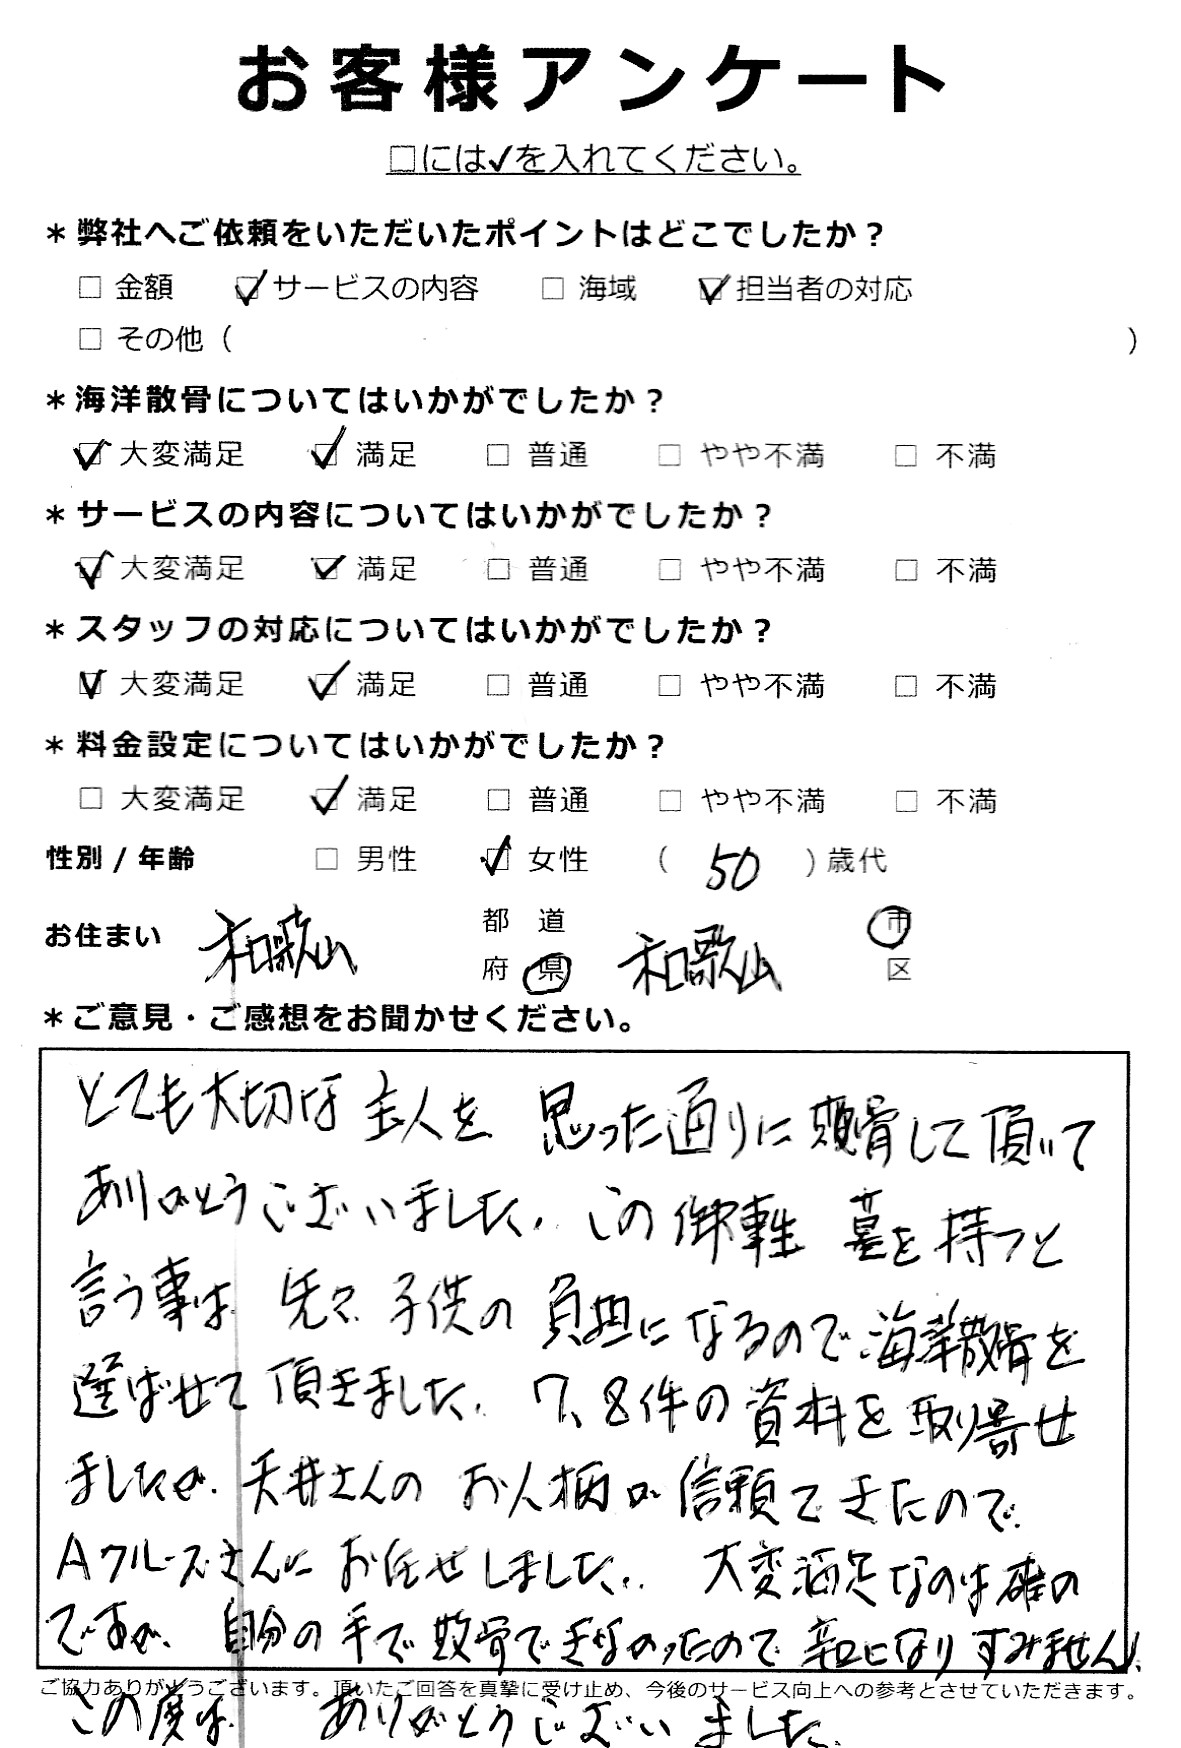 お客様アンケート
□には✓を入れてください。
＊弊社へご依頼をいただいたポイントはどこでしたか？
□ 金額 ☑ サービスの内容 □ 海域 ☑ 担当者の対応
□ その他（ ）
＊海洋散骨についてはいかがでしたか？
☑ 大変満足 ☑ 満足 □ 普通 □ やや不満 □ 不満
＊サービスの内容についてはいかがでしたか？
☑ 大変満足 ☑ 満足 □ 普通 □ やや不満 □ 不満
＊スタッフの対応についてはいかがでしたか？
☑ 大変満足 ☑ 満足 □ 普通 □ やや不満 □ 不満
＊料金設定についてはいかがでしたか？
□ 大変満足 ☑ 満足 □ 普通 □ やや不満 □ 不満
性別 / 年齢 □ 男性 ☑ 女性 （ 50 ）歳代
お住まい 和歌山 都 道 府 県 和歌山 市 区
＊ご意見・ご感想をお聞かせください。
とても大切な主人を 思った通りに 散骨して頂いて
ありがとうございました。この御時世 墓を持つと
言う事は 先々 子供の負担になるので 海洋散骨を
選ばせて頂きました。7、8件の資料を取り寄せ
ましたが、天井さんの お人柄が 信頼できたので
Aクルーズさんに お任せしました。大変満足なのは確の
ですが、自分の手で散骨できなかったので 辛口になりすみません！
ご協力ありがとうございます。頂いたご回答を真摯に受け止め、今後のサービス向上への参考とさせていただきます。
この度は ありがとうございました。